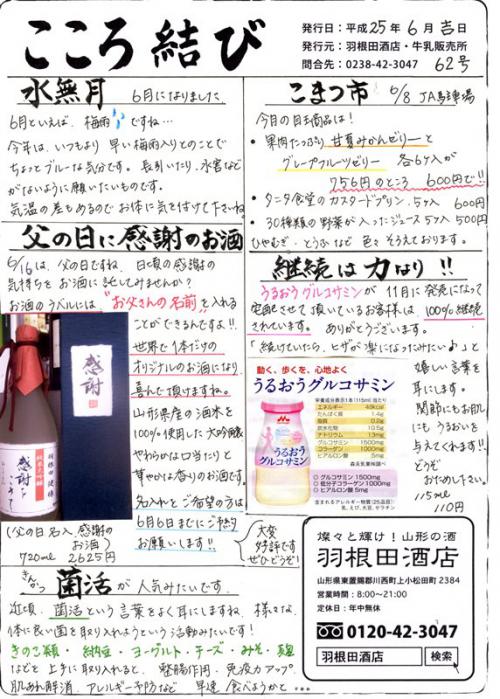 こころ結び
発行日：平成25年6月吉日
発行元：羽根田酒店・牛乳販売所
問合先：0238-42-3047 62号
水無月 6月になりました
6月といえば、梅雨ですね…
今年は、いつもより早い梅雨入りとのことで
ちょっとブルーな気分です。長引いたり、水害など
がないように願いたいものです。
気温の差もあるのでお体に気を付けて下さいね。
こまつ市 6/8 JA駐車場
今月の目玉商品は！
・果肉たっぷり甘夏みかんゼリーと
グレープフルーツゼリー 各6ヶ入が
756円のところ 600円で!!
・タニタ食堂のカスタードプリン.5ヶ入 600円
・30種類の野菜が入ったジュース5ヶ入 500円
ひやむぎ・とうふなど色々そろえております。
父の日に感謝のお酒
6/16は、父の日ですね。日頃の感謝の
気持ちをお酒に託してみませんか？
お酒のラベルには"お父さんの名前"を入れる
ことができるんですよ!!
世界で1本だけの
オリジナルのお酒になり
喜んで頂けますね。
山形県産の酒米を
100%使用した大吟醸
やわらかな口当たりと
華やかな香りのお酒です。
名入れをご希望の方は
6月6日までにご予約
お願いします!!
大変
好評です
ぜひどうぞ!
感謝
感謝
(父の日名入感謝の
お酒)
720ml 2625円
継続は力なり!!
うるおうグルコサミンが11月に発売になって
定期させて頂いているお客様は、100%継続
されています。ありがとうございます。
「続けていたら、ヒザが楽になったみたい♪」と
嬉しい言葉を
耳にします。
関節にもお肌
にもうるおいを
与えてくれます!!
どうぞ
おためし下さい。
115ml
110円
動く、歩くを、心地よく
うるおうグルコサミン
栄養成分表示1本(115ml)当たり
エネルギー 48kcal
たんぱく質 1.4g
脂質 0.2g
炭水化物 10.5g
ナトリウム 13mg
グルコサミン 1500mg
コラーゲン 1000mg
ヒアルロン酸 5mg
うるおう
グルコサミン
○グルコサミン 1500mg
○低分子コラーゲン 1000mg
○ヒアルロン酸 5mg
きんかつ
菌活が人気みたいです.
近頃、菌活という言葉をよく耳にしますね. 様々な、
体に良い菌を取り入れようという活動みたいです!
きのこ類・納豆・ヨーグルト・チーズ・みそ・麹
などを上手に取り入れると、整腸作用・免疫力アップ
肌あれ解消、アレルギー予防など 早速!食べようかと…
燦々と輝け！山形の酒
羽根田酒店
山形県東置賜郡川西町上小松田町2384
営業時間：8:00～21:00
定休日：年中無休
0120-42-3047
羽根田酒店 検索